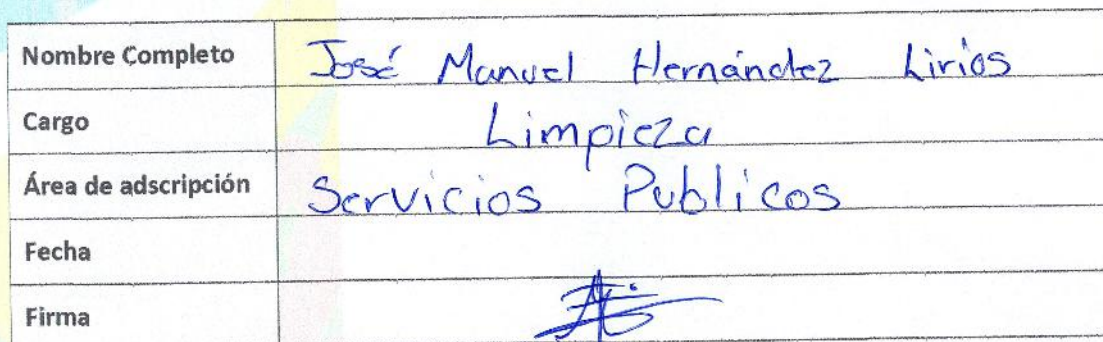 Nombre Completo José Manuel Hernández Lirios
Cargo Limpieza
Área de adscripción Servicios Publicos
Fecha
Firma